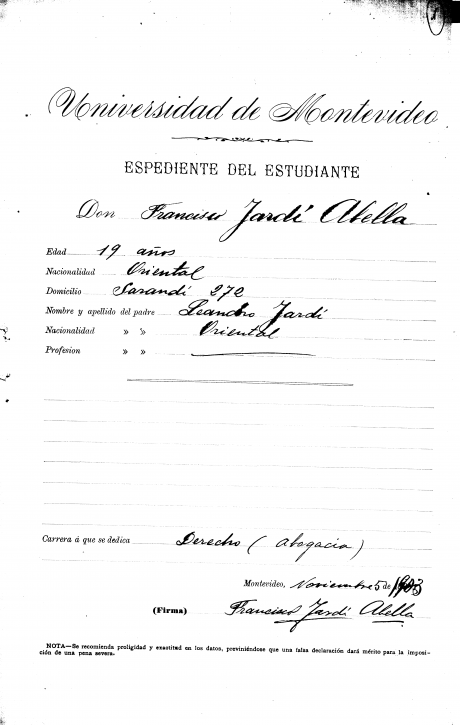 Universidad de Montevideo
ESPEDIENTE DEL ESTUDIANTE
Don Francisco Jardí Abella
Edad 19 años
Nacionalidad Oriental
Domicilio Sarandí 272
Nombre y apellido del padre Leandro Jardí
Nacionalidad » » Oriental
Profesion » »
Carrera á que se dedica Derecho (abogacia)
Montevideo, Noviembre 5 de 1903
(Firma) Francisco Jardí Abella
NOTA—Se recomienda proligidad y exactitud en los datos, previniéndose que una falsa declaración dará mérito para la imposi-
ción de una pena severa.